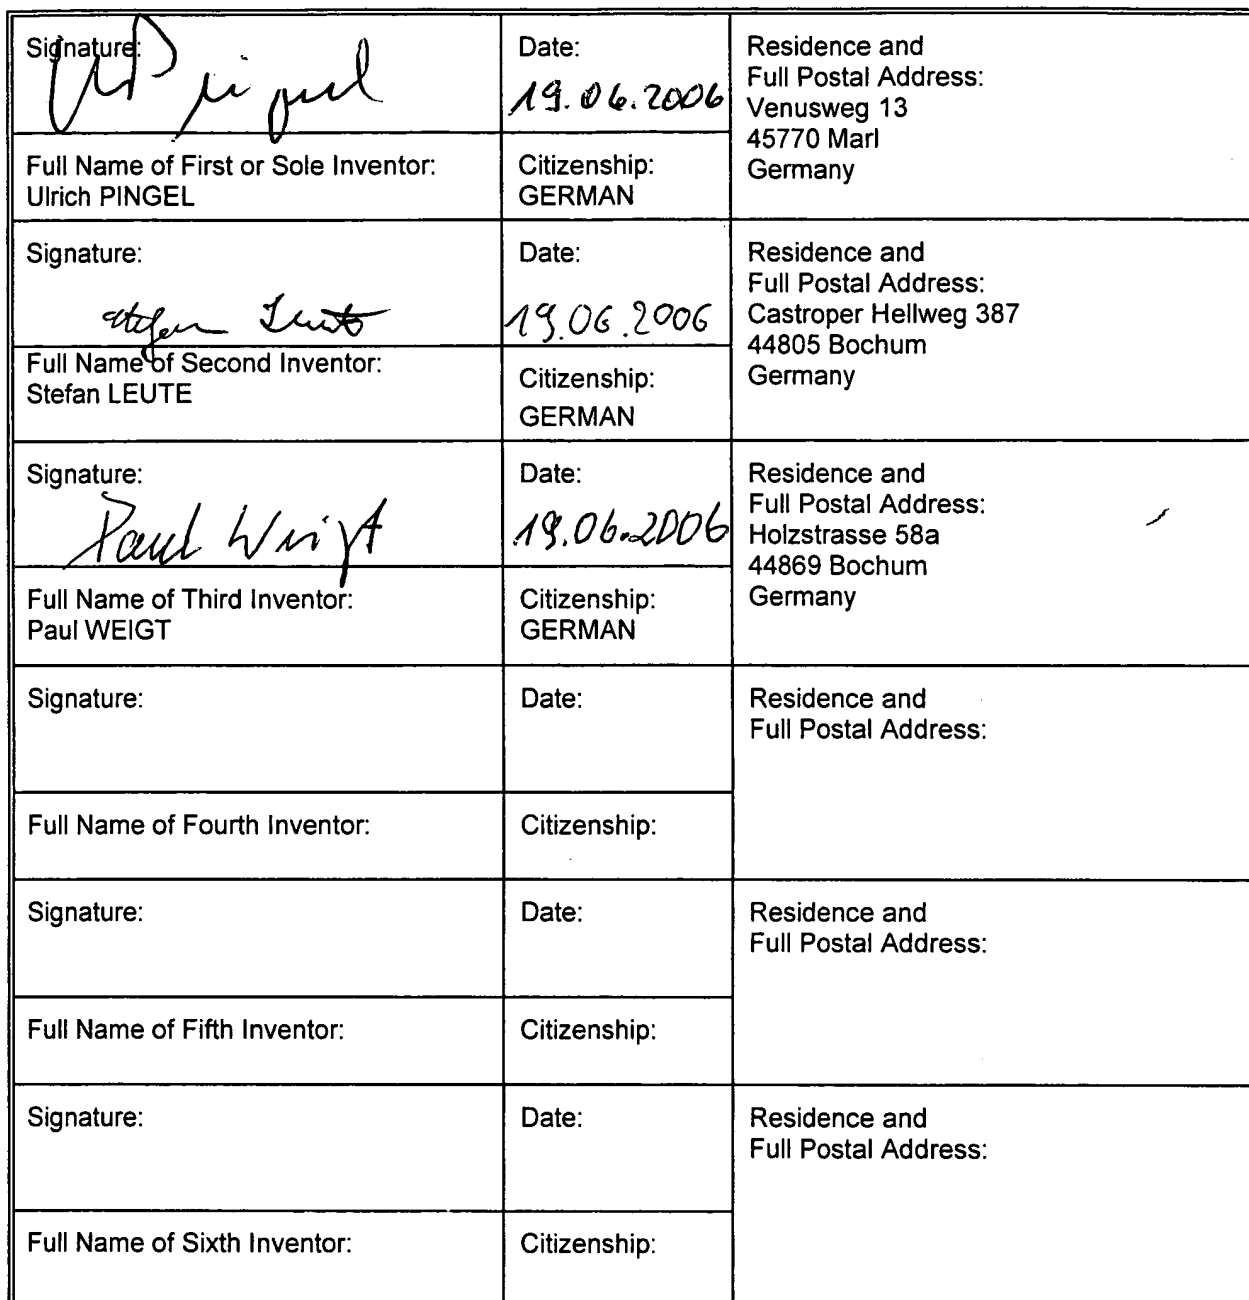 Signature:
Date:
Residence and
Full Postal Address:
Venusweg 13
45770 Marl
Germany
U Pingel
19.06.2006
Full Name of First or Sole Inventor:
Ulrich PINGEL
Citizenship:
GERMAN
Signature:
Date:
Residence and
Full Postal Address:
Castroper Hellweg 387
44805 Bochum
Germany
Stefan Leute
19.06.2006
Full Name of Second Inventor:
Stefan LEUTE
Citizenship:
GERMAN
Signature:
Date:
Residence and
Full Postal Address:
Holzstrasse 58a
44869 Bochum
Germany
Paul Weigt
19.06.2006
Full Name of Third Inventor:
Paul WEIGT
Citizenship:
GERMAN
Signature:
Date:
Residence and
Full Postal Address:
Full Name of Fourth Inventor:
Citizenship:
Signature:
Date:
Residence and
Full Postal Address:
Full Name of Fifth Inventor:
Citizenship:
Signature:
Date:
Residence and
Full Postal Address:
Full Name of Sixth Inventor:
Citizenship: